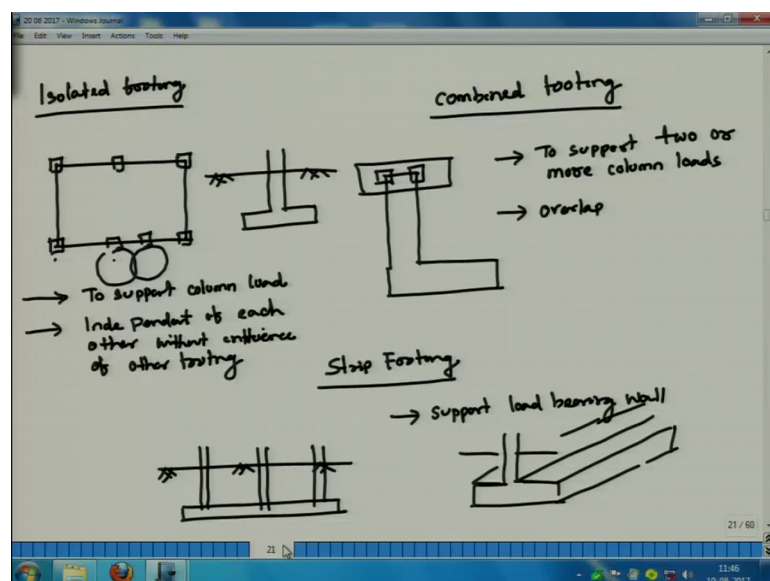 20 06 2017 - Windows Journal
File Edit View Insert Actions Tools Help
Isolated footing
→ To support column load
→ Independent of each
other without influence
of other footing
Combined footing
→ To support two or
more column loads
→ overlap
Strip Footing
→ support load bearing wall
21 / 60
21
11:46
19-08-2017